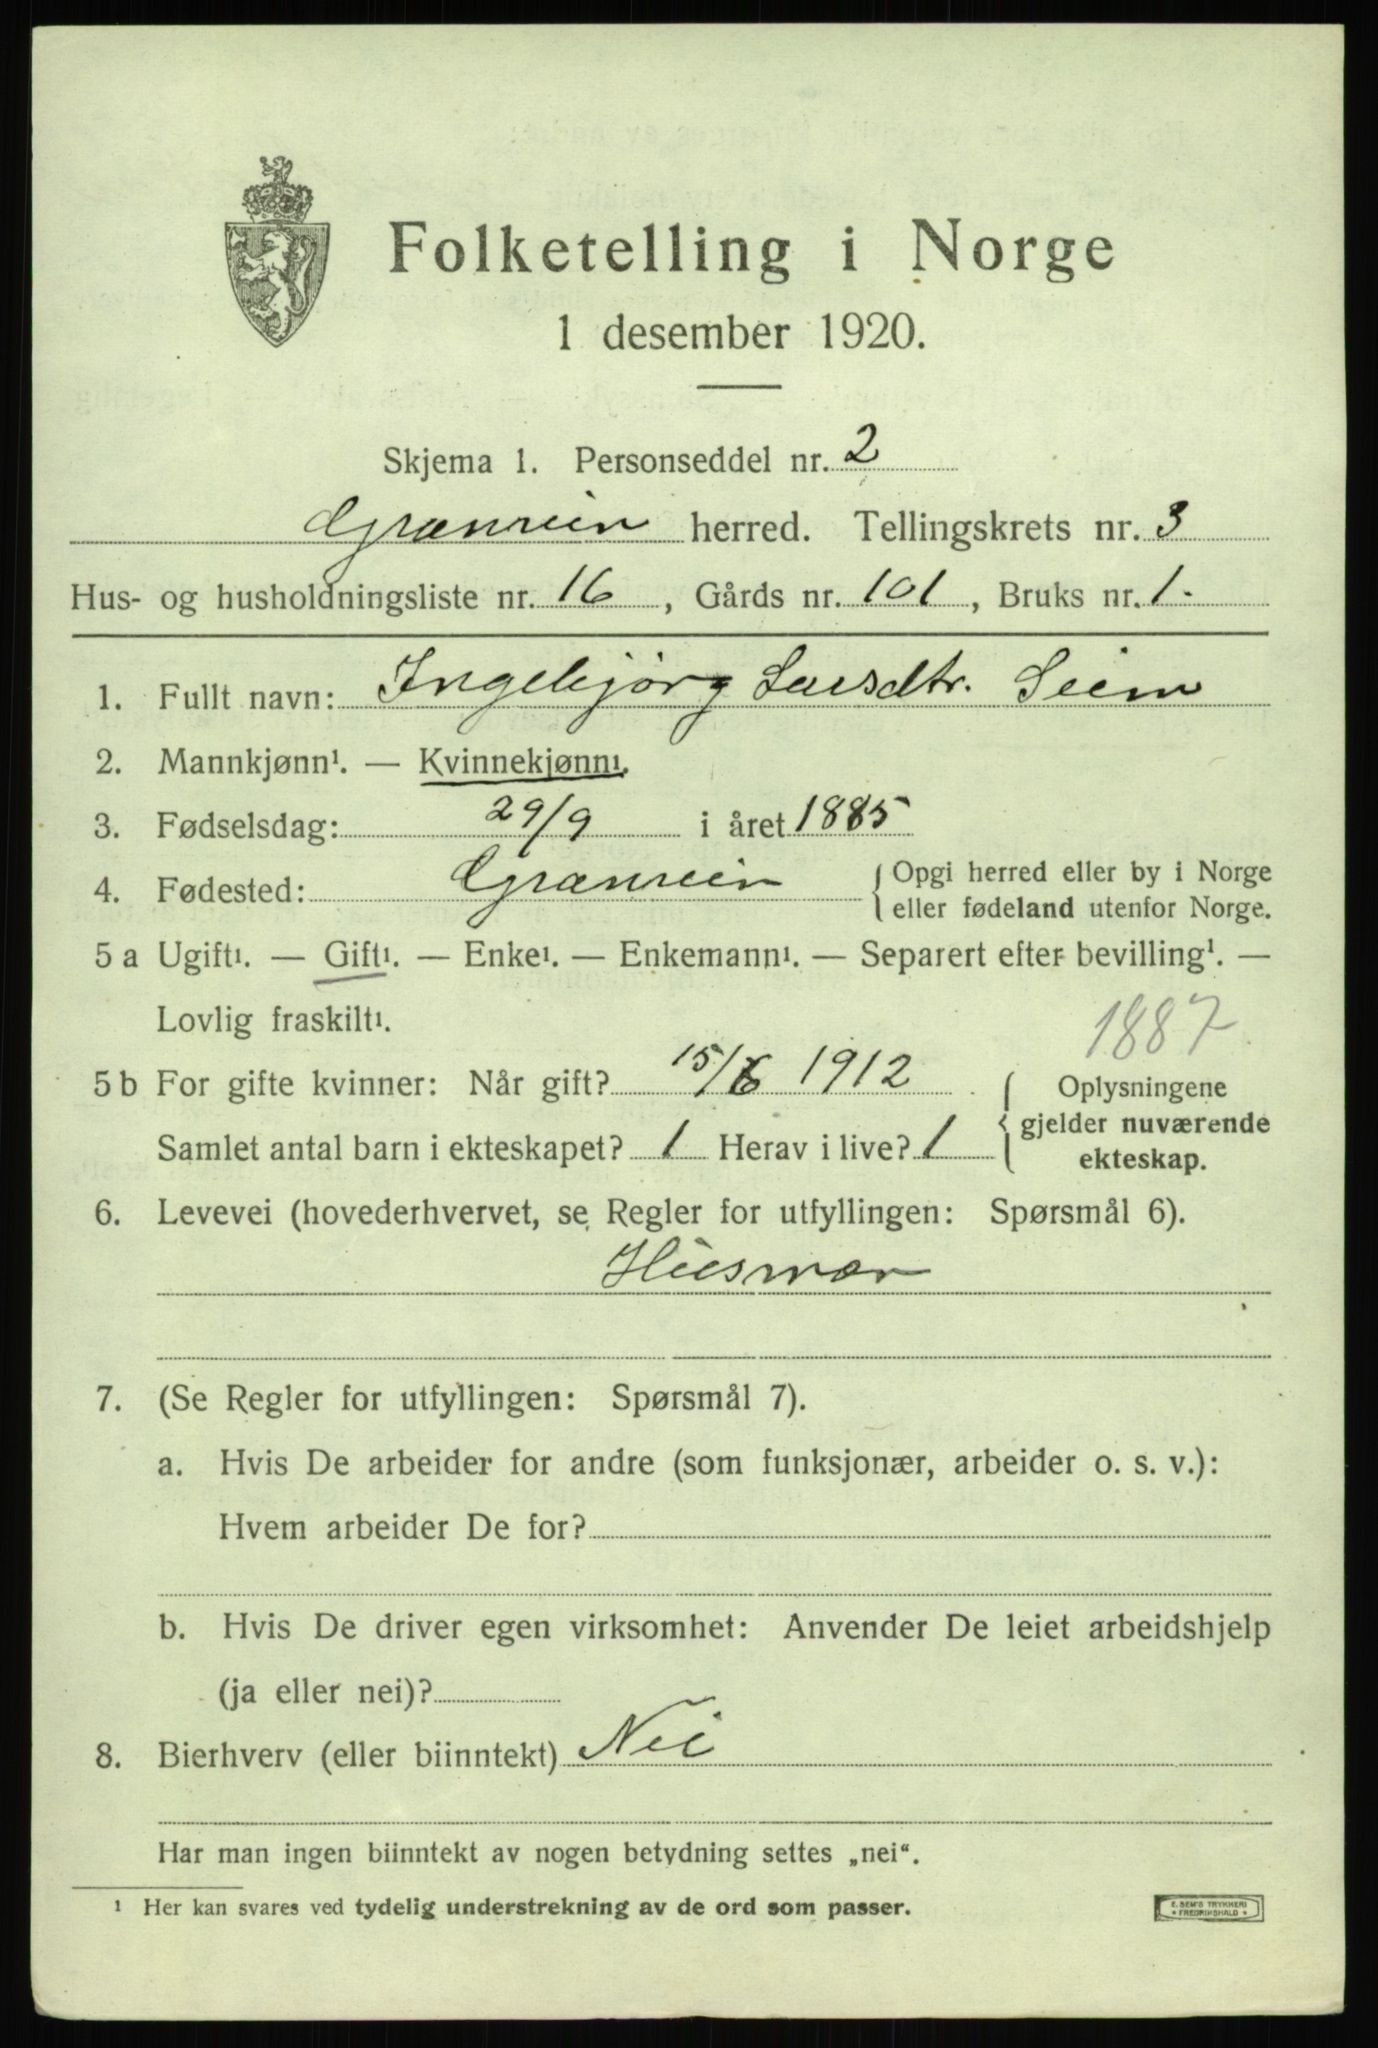 Folketelling i Norge
1 desember 1920.
Skjema 1. Personseddel nr. 2
Granvin herred. Tellingskrets nr. 3
Hus- og husholdningsliste nr. 16, Gårds nr. 101, Bruks nr. 1.
1. Fullt navn: Ingebjörg Larsdtr. Seim
2. Mannkjønn¹. — Kvinnekjønn¹.
3. Fødselsdag: 29/9 i året 1885
4. Fødested: Granvin {Opgi herred eller by i Norge
eller fødeland utenfor Norge.
5 a Ugift¹. — Gift¹. — Enke¹. — Enkemann¹. — Separert efter bevilling¹. —
Lovlig fraskilt¹.
1887
5 b For gifte kvinner: Når gift? 15/6 1912 {Oplysningene
gjelder nuværende
ekteskap.
Samlet antal barn i ekteskapet? 1 Herav i live? 1
6. Levevei (hovederhvervet, se Regler for utfyllingen: Spørsmål 6).
Husmor
7. (Se Regler for utfyllingen: Spørsmål 7).
a. Hvis De arbeider for andre (som funksjonær, arbeider o. s. v.):
Hvem arbeider De for?
b. Hvis De driver egen virksomhet: Anvender De leiet arbeidshjelp
(ja eller nei)?
8. Bierhverv (eller biinntekt) Nei
Har man ingen biinntekt av nogen betydning settes „nei“.
¹ Her kan svares ved tydelig understrekning av de ord som passer.
E. SEM'S TRYKKERI
* FREDRIKSHALD *